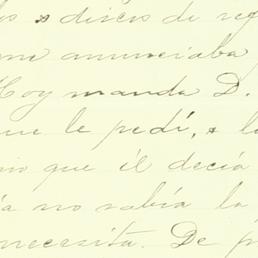 discos de
me anunciaba
Hoy manda D.
ue le pedí, a lo
mo que él decía
ía no sabía la
necesita. De p